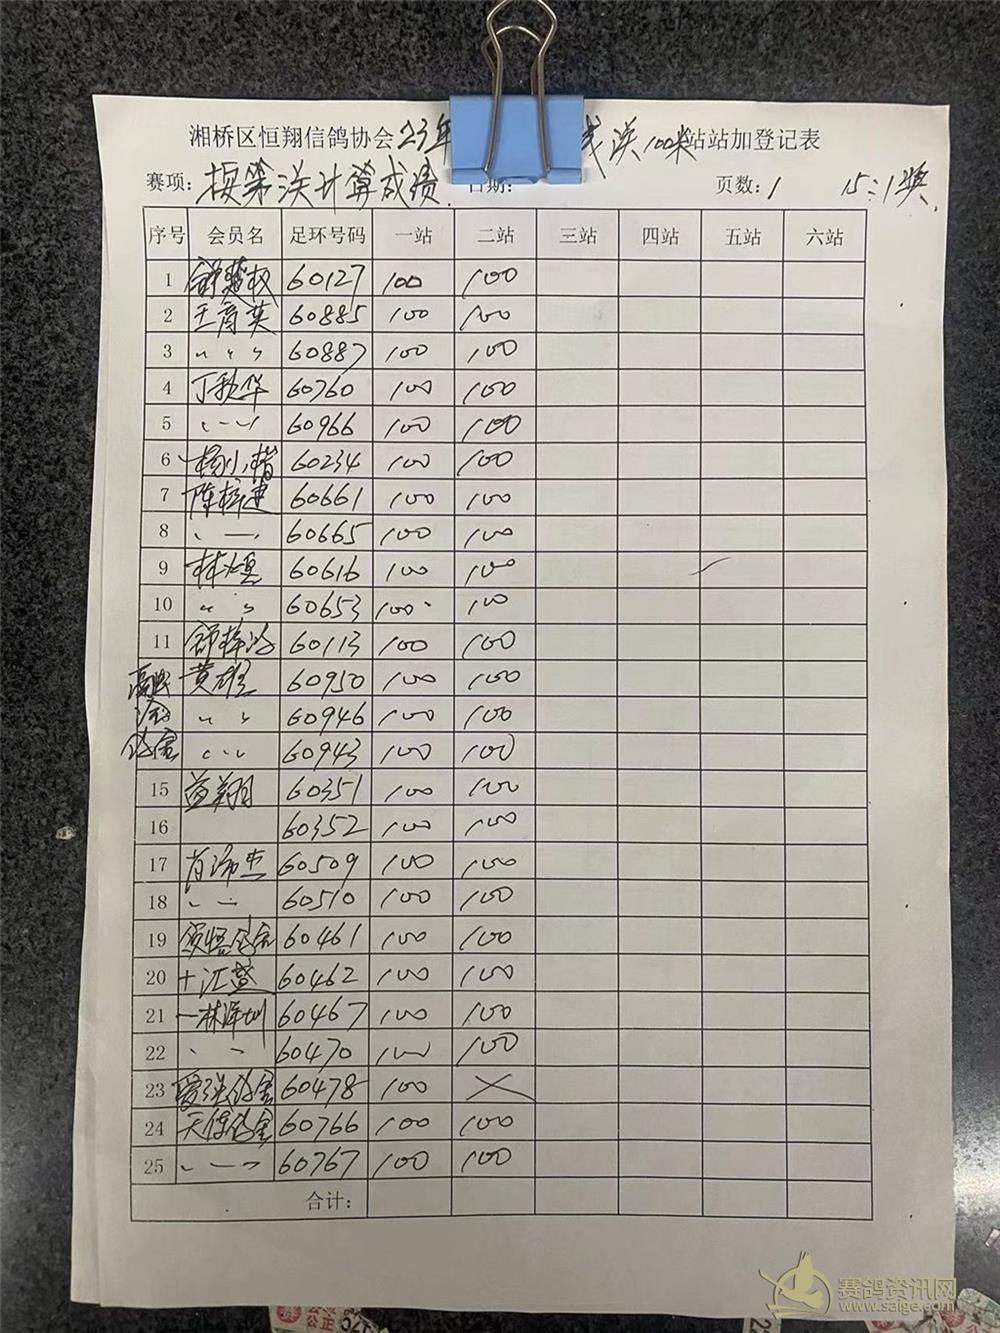 湘桥区恒翔信鸽协会23年 100米站站加登记表
赛项: 按第 计算成绩. 日期: 页数: 1 15:1奖.
序号 会员名 足环号码 一站 二站 三站 四站 五站 六站
1 60127 100 100
2 王育英 60885 100 100
3 〃 〃 〃 60887 100 100
4 丁秋华 60760 100 100
5 60966 100 100
6 杨小楷 60234 100 100
7 陈梓建 60661 100 100
8 60665 100 100
9 60616 100 100
10 〃 〃 60653 100 100
11 60113 100 100
黄雄 60950 100 100
〃 〃 60946 100 100
鸽舍 60943 100 100
15 益翔 60351 100 100
16 60352 100 100
17 肖沛杰 60509 100 100
18 60510 100 100
19 鸽舍 60461 100 100
20 十汇盛 60462 100 100
21 一林泽圳 60467 100 100
22 60470 100 100
23 爱强鸽舍 60478 100 ×
24 天信鸽舍 60766 100 100
25 60767 100 100
合计:
赛鸽资讯网
www.saige.com